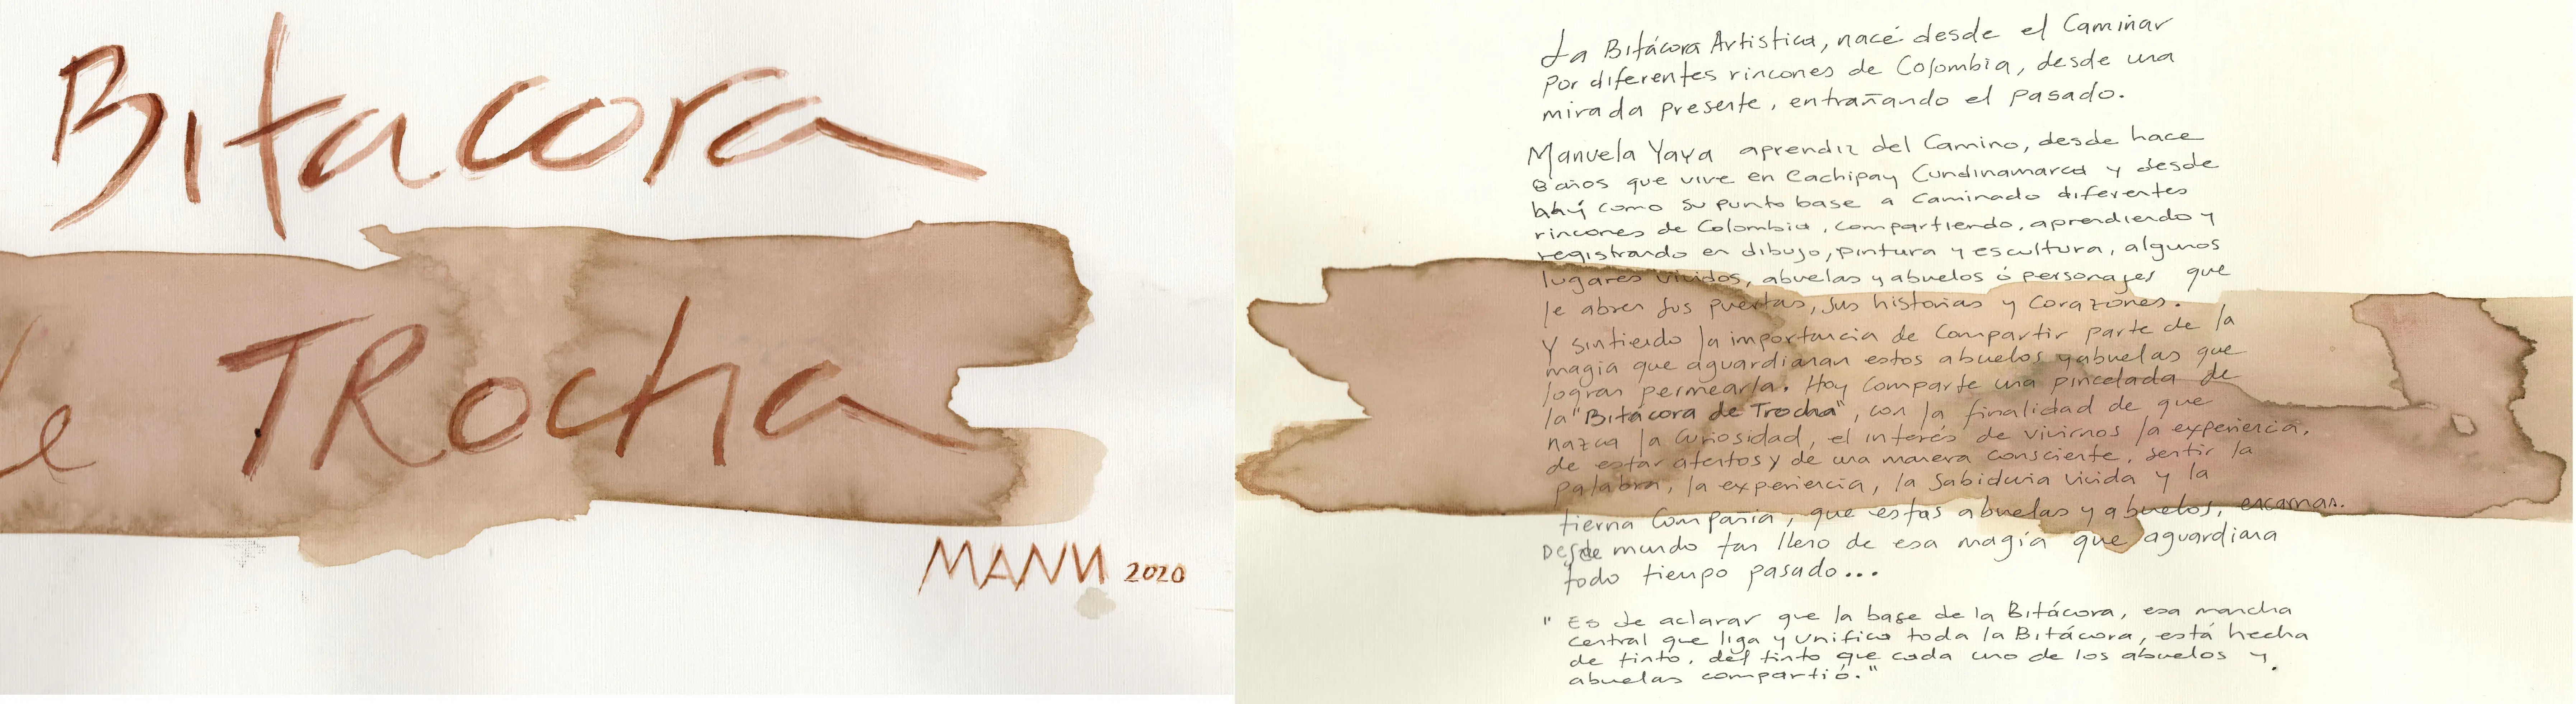 Bitacora
de TRocha
MANU 2020
La Bitácora Artistica, nace desde el Caminar
por diferentes rincones de Colombia, desde una
mirada presente, entrañando el pasado.
Manuela Yaya aprendiz del Camino, desde hace
8 años que vive en Cachipay Cundinamarca y desde
ahí como su punto base a Caminado diferentes
rincones de Colombia, compartiendo, aprendiendo y
registrando en dibujo, pintura y escultura, algunos
lugares vividos, abuelas y abuelos ó personajes que
le abren sus puertas, sus historias y Corazones.
Y sintiendo la importancia de Compartir parte de la
magia que aguardianan estos abuelos y abuelas que
logran permearla. Hoy Comparte una pincelada de
la "Bitácora de Trocha", con la finalidad de que
nazca la Curiosidad, el interés de vivirnos la experiencia,
de estar atentos y de una manera consciente, sentir la
palabra, la experiencia, la Sabiduria vivida y la
tierna Compañia, que estas abuelas y abuelos, encarnan.
Desde mundo tan lleno de esa magia que aguardiana
todo tiempo pasado...
" Es de aclarar que la base de la Bitácora, esa mancha
central que liga y unifica toda la Bitácora, está hecha
de tinto, del tinto que cada uno de los abuelos y
abuelas compartió."